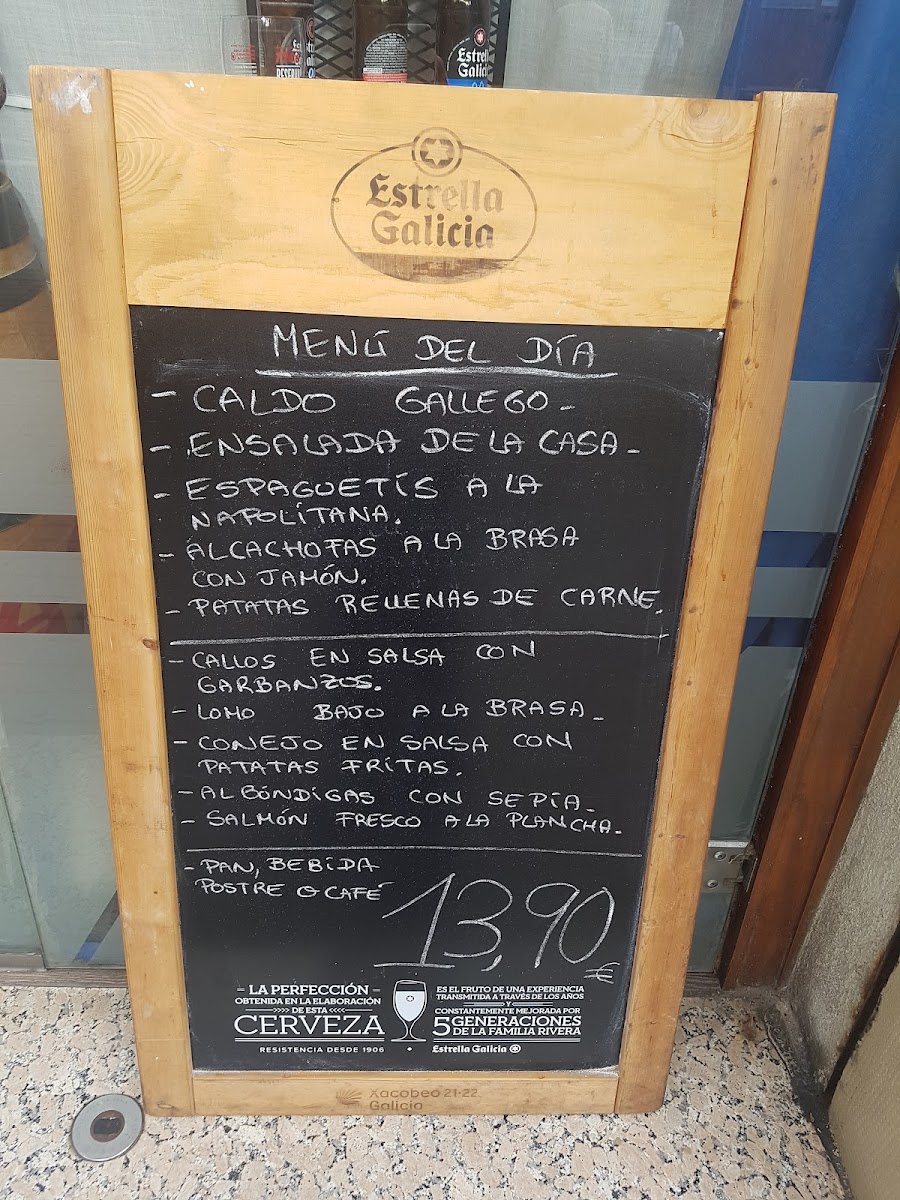 Estrella
Galicia
Estrella
Galicia
MENÚ DEL DÍA
- CALDO GALLEGO -
- ENSALADA DE LA CASA -
- ESPAGUETIS A LA
NAPOLITANA.
- ALCACHOFAS A LA BRASA
CON JAMÓN.
- PATATAS RELLENAS DE CARNE.
- CALLOS EN SALSA CON
GARBANZOS.
- LOMO BAJO A LA BRASA -
- CONEJO EN SALSA CON
PATATAS FRITAS.
- ALBÓNDIGAS CON SEPIA -
- SALMÓN FRESCO A LA PLANCHA -
- PAN, BEBIDA
POSTRE O CAFÉ
13,90 €
LA PERFECCIÓN
OBTENIDA EN LA ELABORACIÓN
DE ESTA
CERVEZA
RESISTENCIA DESDE 1906
ES EL FRUTO DE UNA EXPERIENCIA
TRANSMITIDA A TRAVÉS DE LOS AÑOS
Y
CONSTANTEMENTE MEJORADA POR
5 GENERACIONES
DE LA FAMILIA RIVERA
Estrella Galicia
Xacobeo 21·22
Galicia